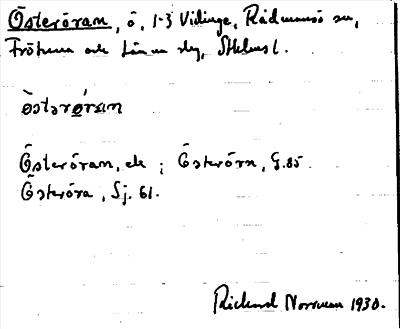 Österöram, ö, 1-3 Vidinge, Rådmansö sn,
Frötuna och Länna slg, Sthlms l.
òstərǿram
Österöram, ek ; Österöra, G.85.
Österöra, Sj. 61.
Rickard Norrman 1930.